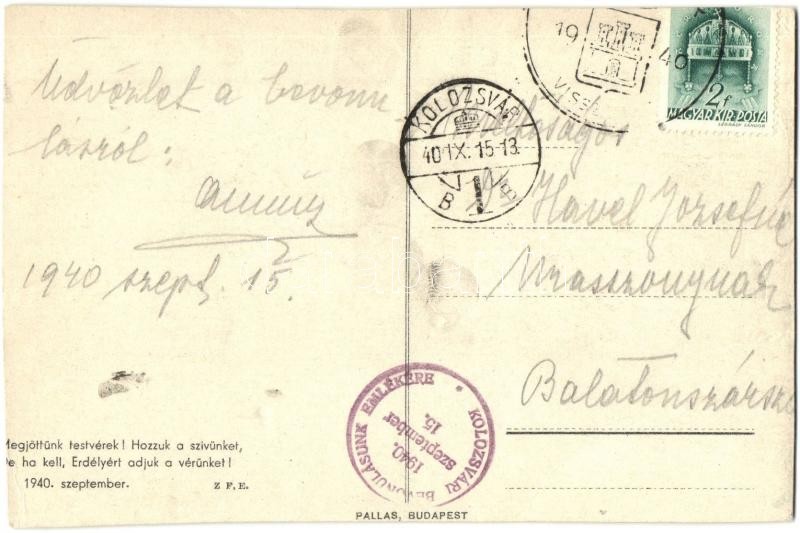 Üdvözlet a bevonu
lásról:
1940 szept. 15.
Megjöttünk testvérek! Hozzuk a szivünket,
De ha kell, Erdélyért adjuk a vérünket!
1940. szeptember. Z F. E.
PALLAS, BUDAPEST
KOLOZSVÁRI BEVONULÁSUNK EMLÉKÉRE
1940.
szeptember
15.
KOLOZSVÁR
40 IX. 15-13
B 1 B
19 40
VISS
2f
MAGYAR KIR. POSTA
LÉGRÁDY SÁNDOR
Havel Józsefné
Uraasszonynak
Balatonszársz